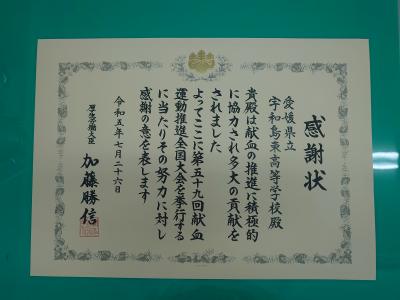 感謝状
愛媛県立
宇和島東高等学校殿
貴殿は献血の推進に積極的
に協力され多大の貢献を
されました
よってここに第五十九回献血
運動推進全国大会を挙行する
に当たりその努力に対し
感謝の意を表します
令和五年七月二十六日
厚生労働大臣
加藤勝信